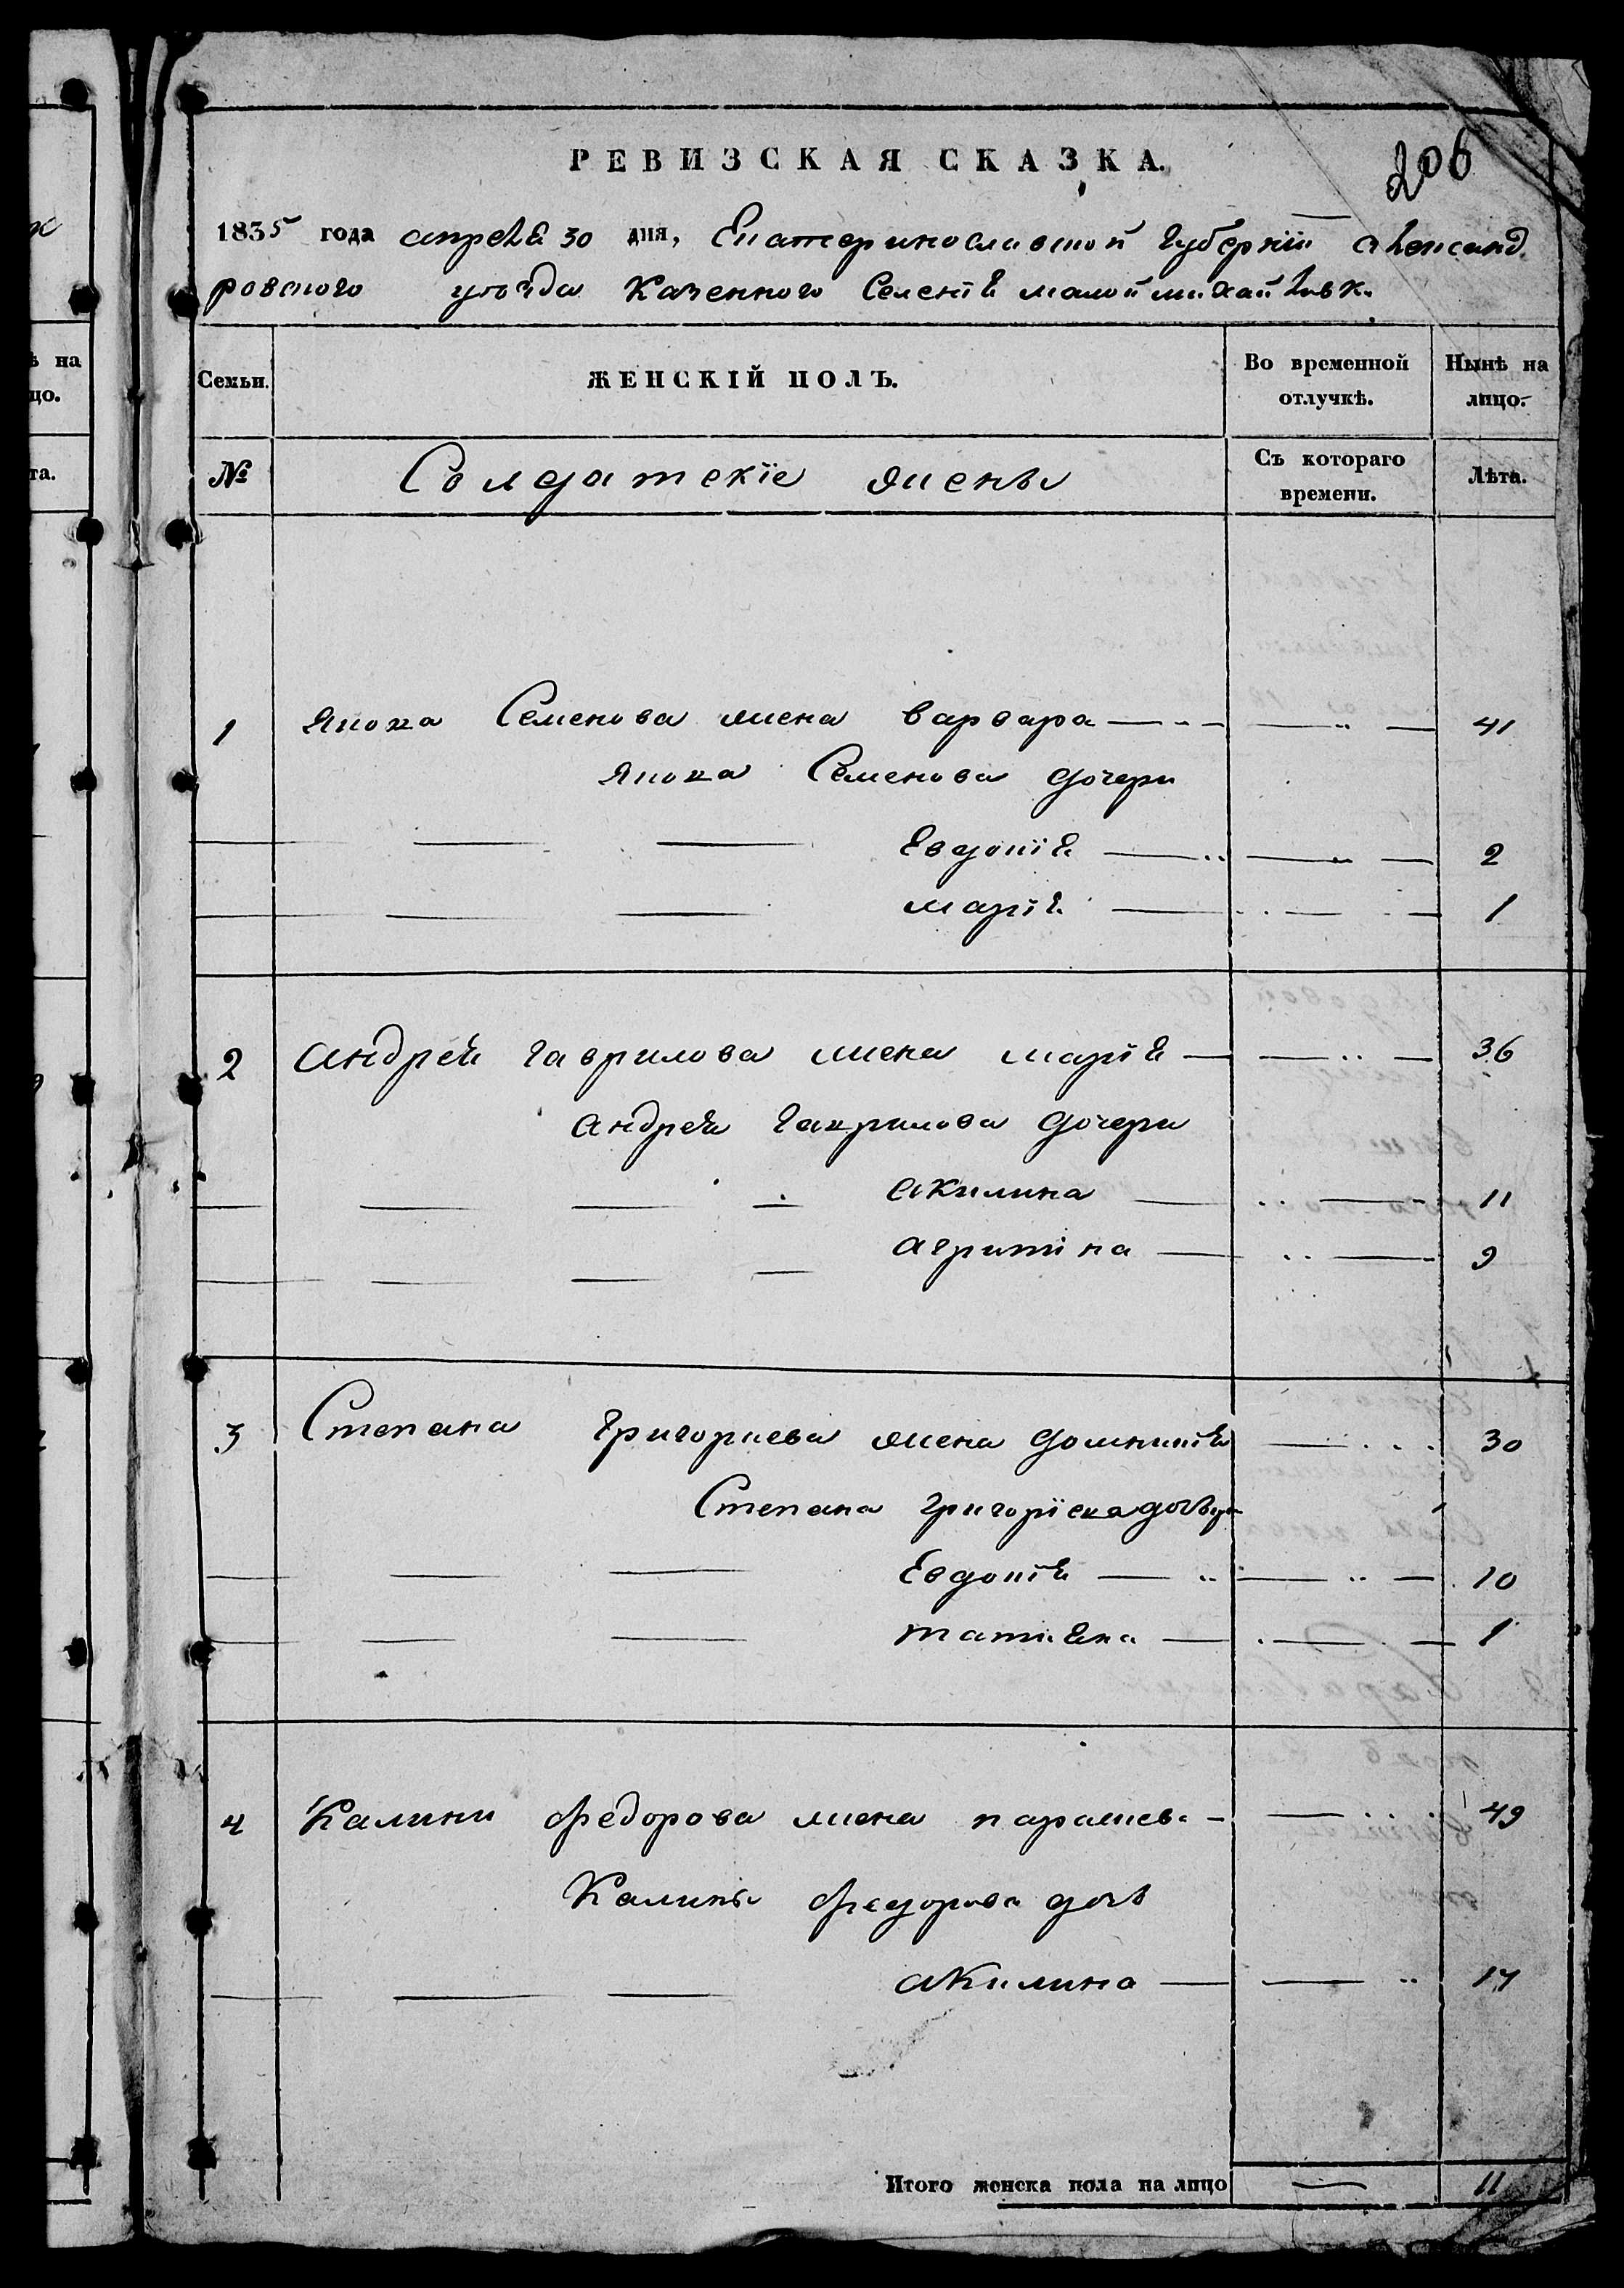 РЕВИЗСКАЯ СКАЗКА.
206
1835 года апреля 30 дня, Екатеринославской губернiи Александ
ровского уѣзда Казенного Селенiя малой михайловки
Семьи.
ЖЕНСКIЙ ПОЛЪ.
Во временной отлучкѣ.
Нынѣ на лицо.
№
Солдатскiе жены
Съ котораго времени.
Лѣта.
1 Якова Семенова жена варвара 41
Якова Семенова дочери
Евдокiя 2
марiя 1
2 андрея гаврилова жена марiя 36
андрея гаврилова дочери
акилина 11
агрипiна 9
3 Степана григориева жена домникiя 30
Степана григорiева дочери
Евдокiя 10
татияна 1
4 Калини федорова жена парашева 49
Калины федорова дочь
акилина 17
Итого женска пола на лицо 11
ѣ на
цо.
та.